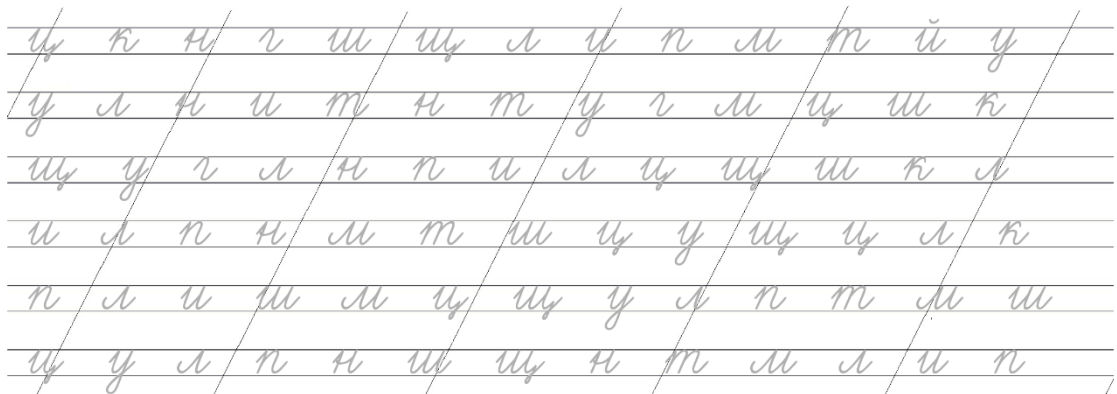 ц к н г ш щ л и п м т й у
у л н и т н т у г м ц ш к
щ у г л н п и л ц щ ш к л
и л п н м т ш ц у щ ц л к
п л и ш м ц щ у л п т м ш
ц у л п н ш щ н т м л и п